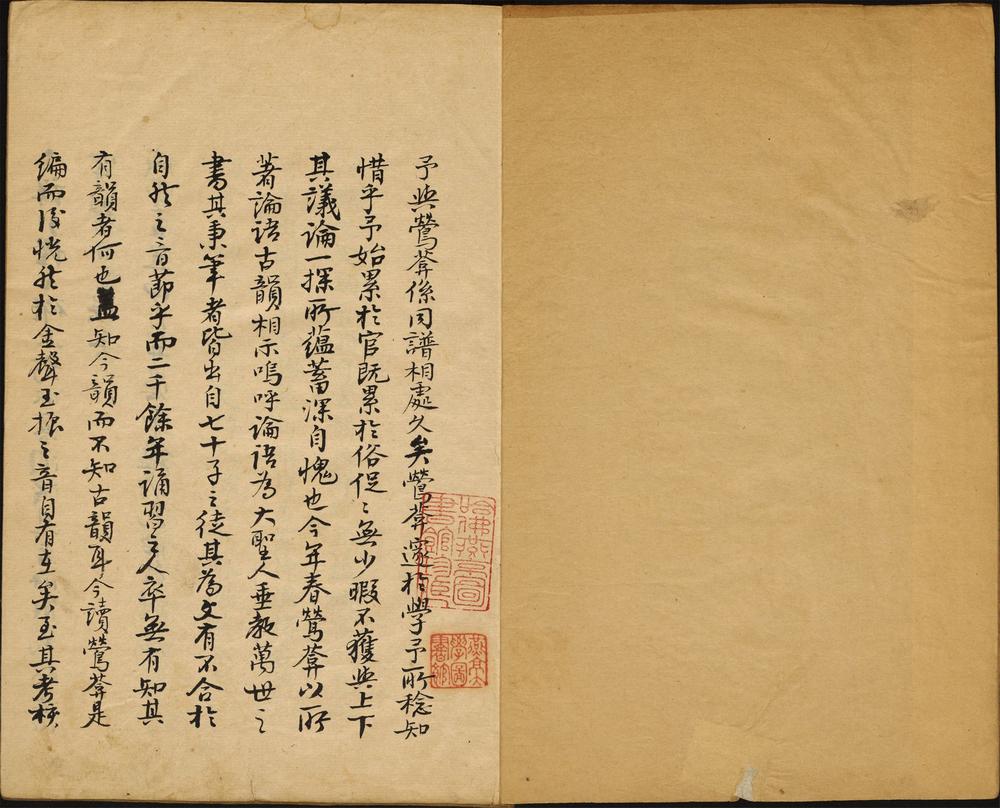 予與鶯莽係同譜相處久矣鶯莽邃於學予所稔知
惜乎予始累於官既累於俗促〻無少暇不獲與上下
其議論一探所蘊蓄深自愧也今年春鶯莽以所
著論語古韻相示嗚呼論語為大聖人垂教萬世之
書其秉筆者皆出自七十子之徒其為文有不合於
自然之音節乎而二千餘年誦習之人卒無有知其
有韻者何也蓋知今韻而不知古韻耳今讀鶯莽是
編而後恍然於金聲玉振之音自有在矣至其考核
哈佛燕京
書館
燕京大
學圖
書館